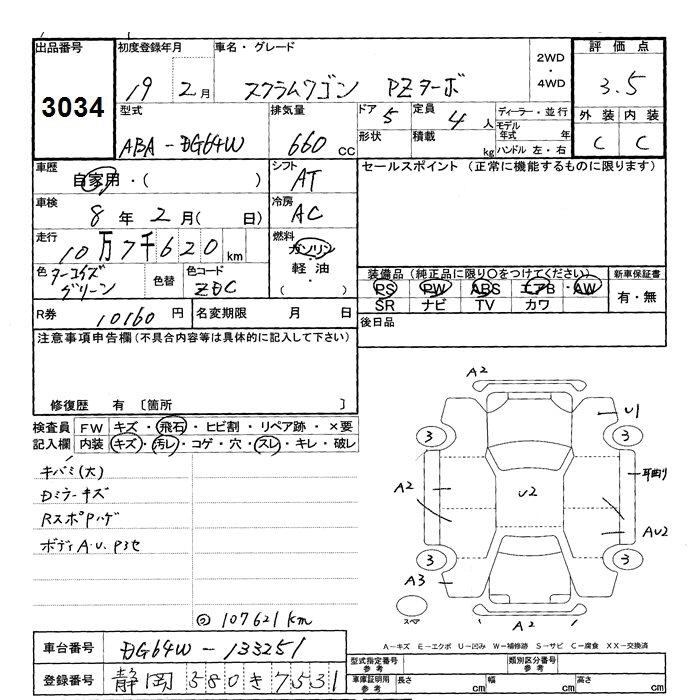 出品番号 初度登録年月 車名・グレード 2WD・4WD 評価点
3034 19 2月 スクラムワゴン PZターボ 3.5
型式 排気量 ドア 5 定員 4人 ディーラー・並行 外装 内装
ABA-DG64W 660cc 形状 積載 kg モデル年式 年 C C
ハンドル 左・右
車歴 自家用・( ) シフト AT セールスポイント (正常に機能するものに限ります)
車検 8年2月( 日) 冷房 AC
走行 10万7千620km 燃料 ガソリン 軽・油 ( )
色 ターコイズグリーン 色替 色コード ZDC 装備品(純正品に限り〇をつけてください) 新車保証書
PS PW ABS エアB・AW 有・無
SR ナビ TV カワ
R券 10160円 名変期限 月 日 後日品
注意事項申告欄(不具合内容等は具体的に記入して下さい)
修復歴 有 〔箇所 〕
検査員 FW キズ・飛石・ヒビ割・リペア跡・×要
記入欄 内装 キズ・汚レ・コゲ・穴・スレ・キレ・破レ
キバミ(大)
Dミラーキズ
RスポPハゲ
ボディA.U.Pヨセ
◎107621km
A2
U1
3 3
A2 U2 耳曲り
AU2
3 3
A3
スペア A2
A-キズ E-エクボ U-凹み W-補修跡 S-サビ C-腐食 XX-交換済
車台番号 DG64W-133251
型式指定番号 参考 類別区分番号 参考
登録番号 静岡 580 き 7531
車庫証明用 参考 長さ cm 幅 cm 高さ cm